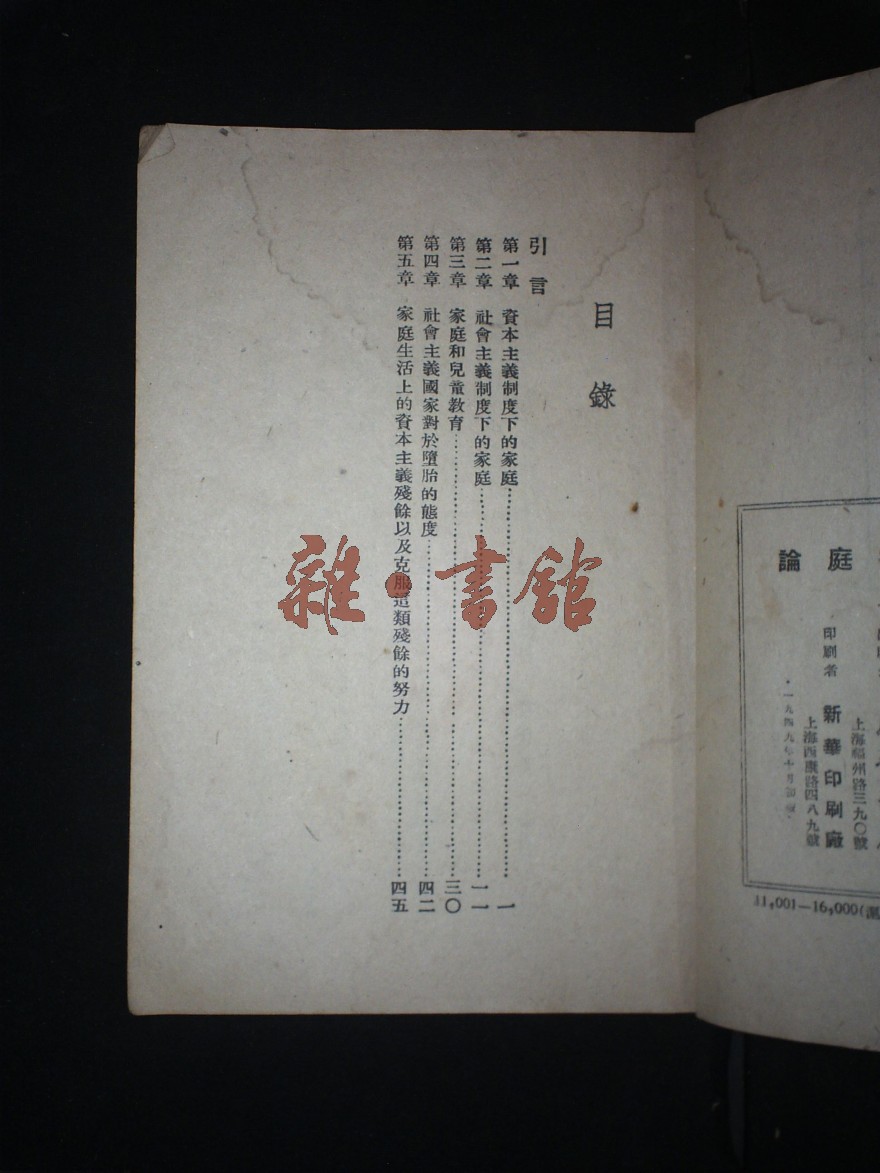 目錄
引言
第一章 資本主義制度下的家庭……一
第二章 社會主義制度下的家庭……一一
第三章 家庭和兒童教育……三〇
第四章 社會主義國家對於墮胎的態度……四二
第五章 家庭生活上的資本主義殘餘以及克服這類殘餘的努力……四五
雜·書館
庭論
上海福州路三九〇號
印刷者 新華印刷廠
上海西康路四八九號
11,001—16,000